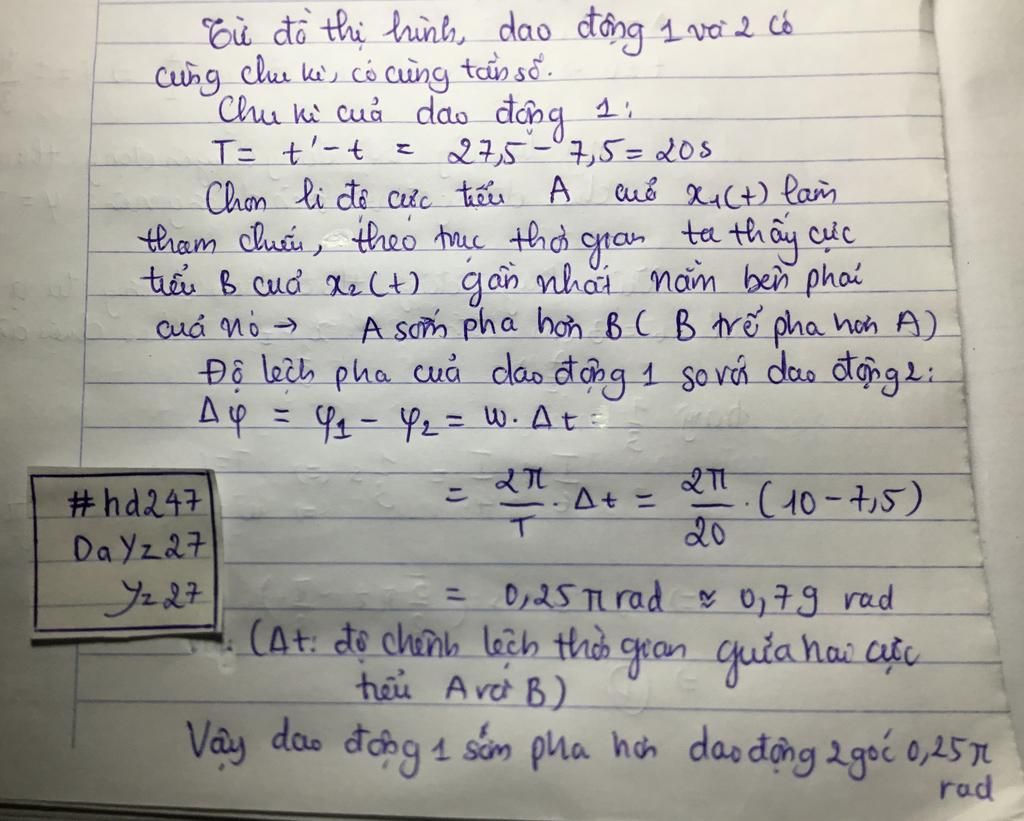 Từ đồ thị hình, dao động 1 và 2 có
cùng chu kì, có cùng tần số.
Chu kì của dao động 1:
T = t' - t = 27,5 - 7,5 = 20s
Chọn li độ cực tiểu A của x₁(t) làm
tham chiếu, theo trục thời gian ta thấy cực
tiểu B của x₂(t) gần nhất nằm bên phải
của nó → A sớm pha hơn B ( B trễ pha hơn A)
Độ lệch pha của dao động 1 so với dao động 2:
Δφ = φ₁ - φ₂ = ω. Δt =
= 2π/T . Δt = 2π/20 . (10 - 7,5)
= 0,25 π rad ≈ 0,79 rad
(Δt: độ chênh lệch thời gian giữa hai cực
tiểu A và B)
Vậy dao động 1 sớm pha hơn dao động 2 góc 0,25π
rad
#hd247
DaYz27
Yz27